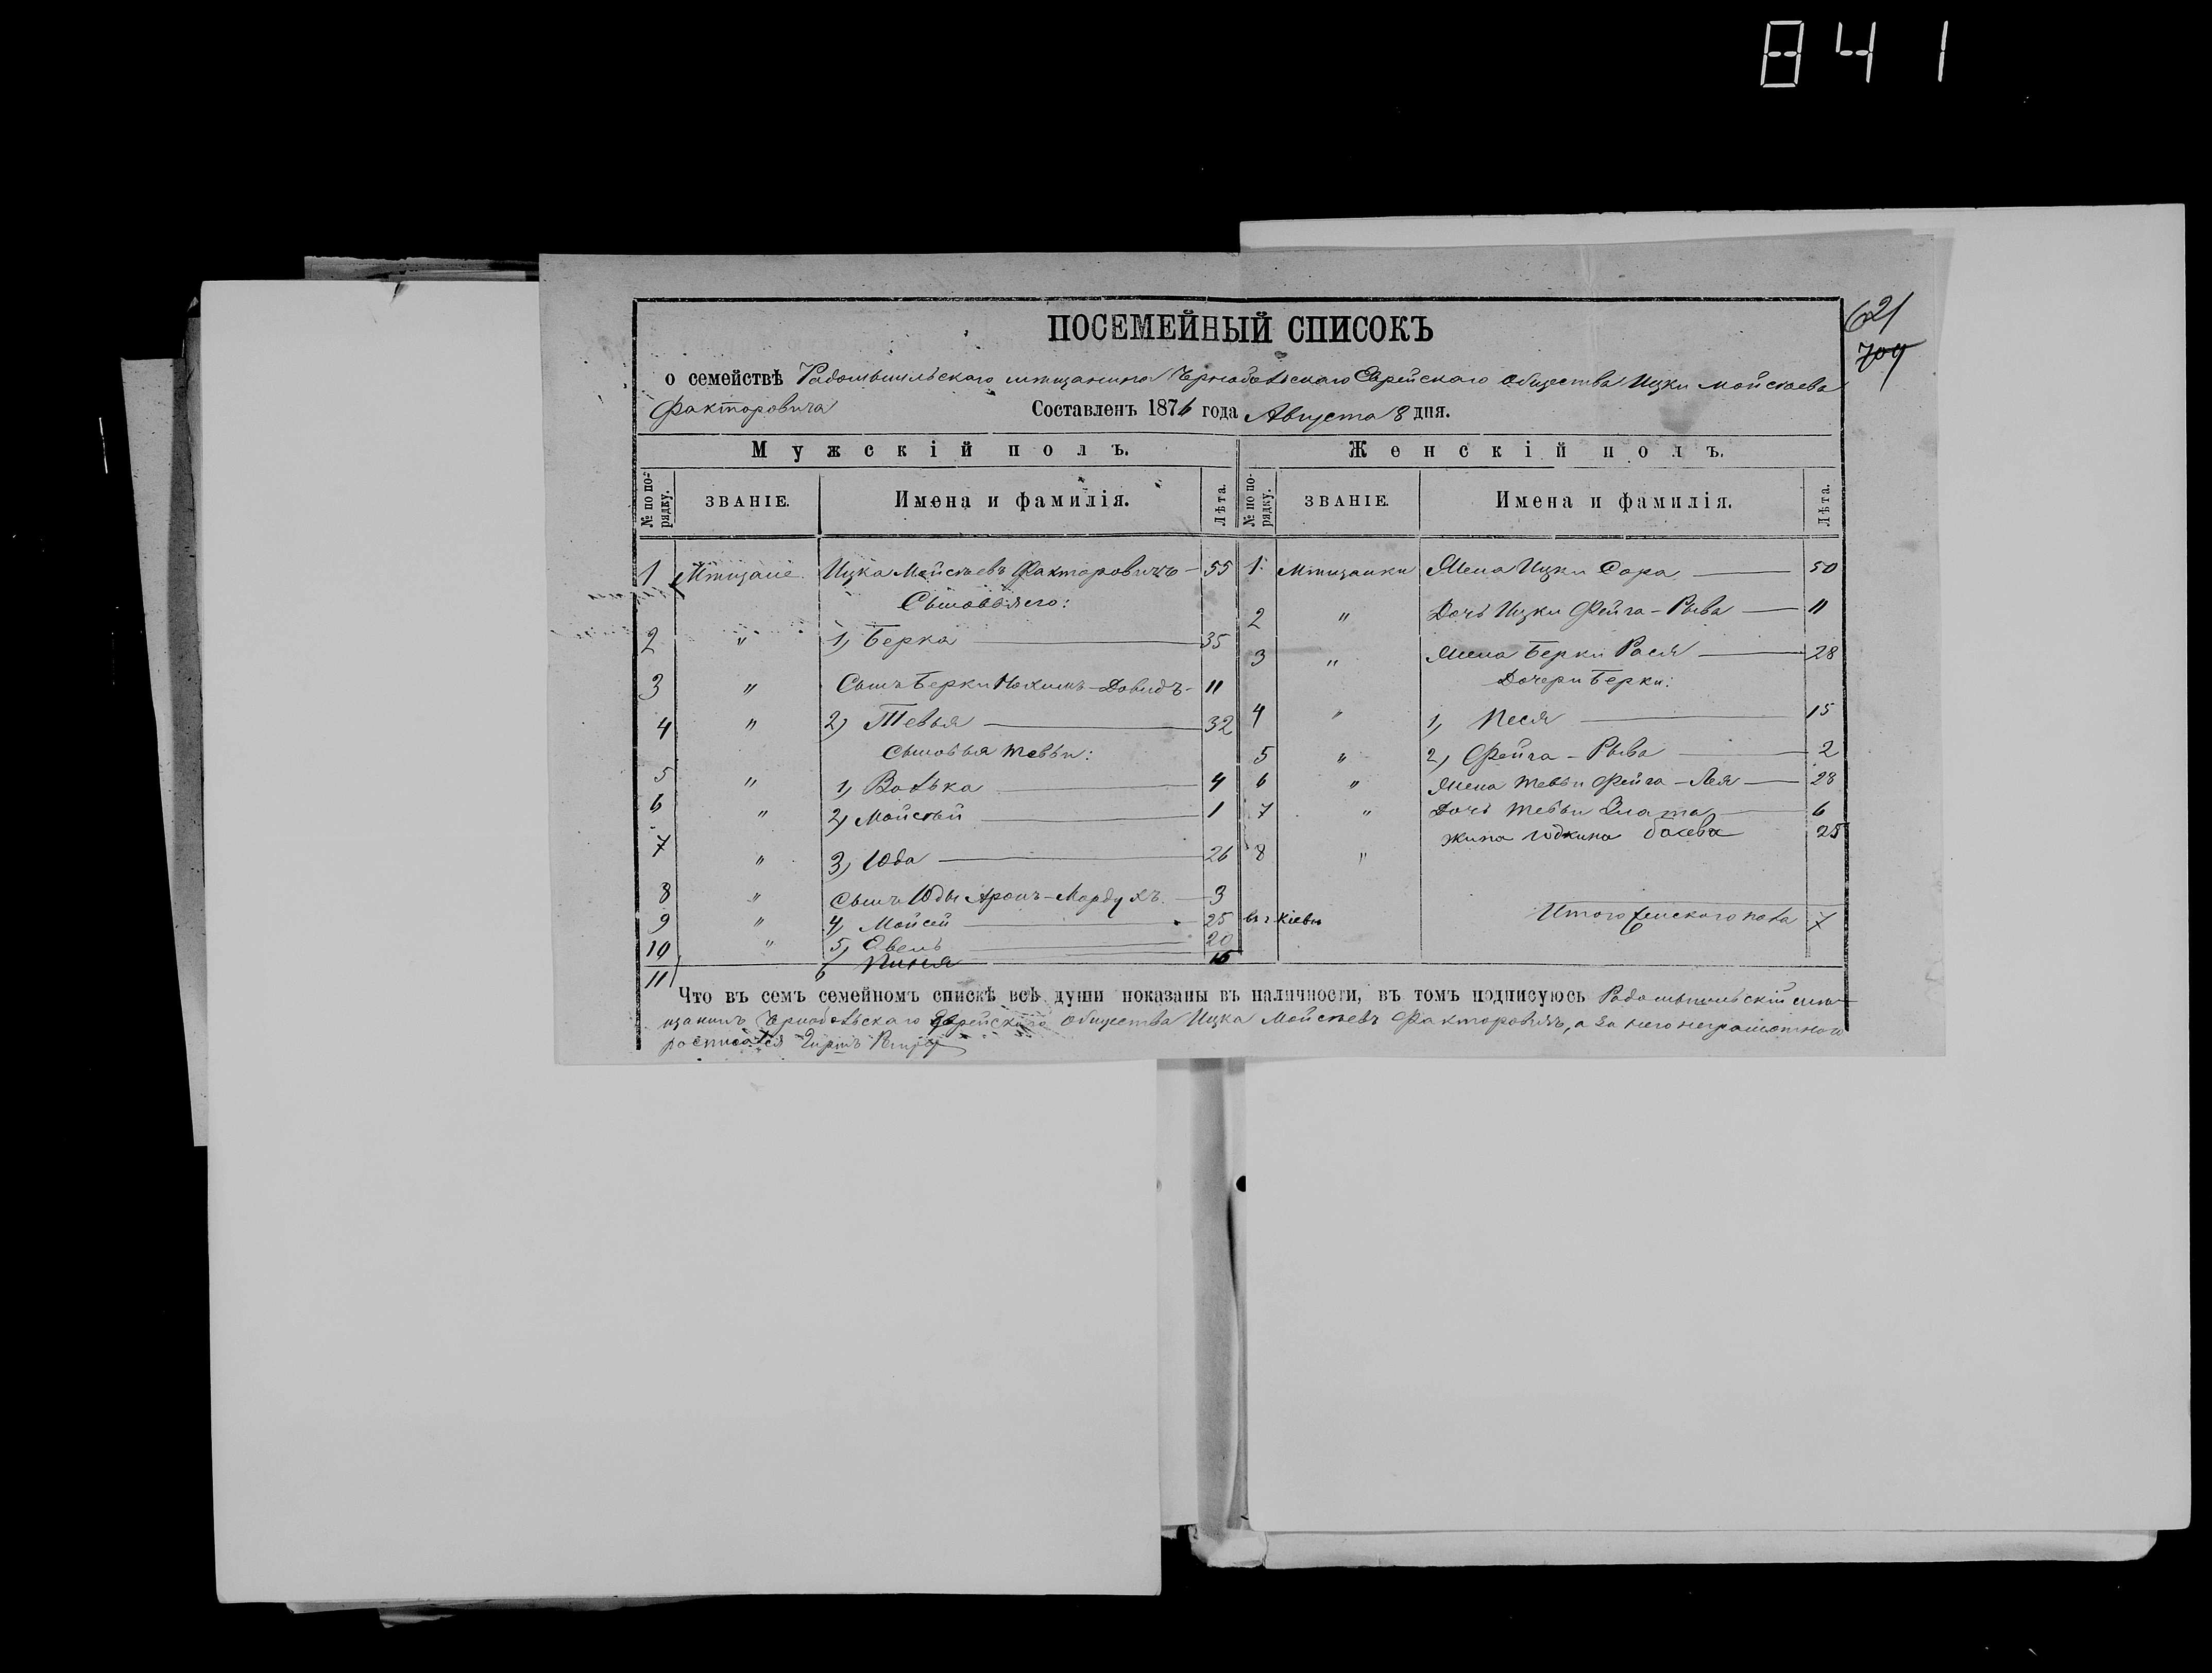 841
621
709
ПОСЕМЕЙНЫЙ СПИСОКЪ
о семействѣ Радомысльскаго мѣщанина Чернобыльскаго Еврейскаго общества Ицки Мойсѣева
Факторовича Составленъ 1876 года Августа 8 дня.
Мужскій полъ. Женскій полъ.
№ по порядку. ЗВАНІЕ. Имена и фамилія. Лѣта. № по порядку. ЗВАНІЕ. Имена и фамилія. Лѣта.
1 Мѣщане Ицка Мойсѣевъ Факторовичъ 55
Сыновья его:
2 " 1, Берка 35
3 " Сынъ Берки Нохимъ-Довидъ 11
4 " 2, Тевья 32
Сыновья Тевьи:
5 " 1, Волька 4
6 " 2, Мойсѣй 1
7 " 3, Юда 26
8 " Сынъ Юды Аронъ-Мордухъ 3
9 " 4, Мойсей 25 въ г. Кіевѣ
10 " 5, 20
11 6 Пиня 16
1. Мѣщанки Жена Ицки Сора 50
2 " Дочь Ицки Фейга-Рыва 11
3 " Жена Берки Рася 28
Дочери Берки:
4 " 1, Песя 15
5 " 2, Фейга-Рыва 2
6 " Жена Тевьи Фейга-Лея 28
7 " Дочь Тевьи Злата 6
8 " жина Юдкина 25
Итого женского пола 7
Что въ семъ семейномъ спискѣ всѣ души показаны въ наличности, въ томъ подписуюсь Радомысльскій мѣ-
щанинъ Чернобыльскаго Еврейскаго общества Ицка Мойсѣевъ Факторовичъ, а за него неграмотного
росписался